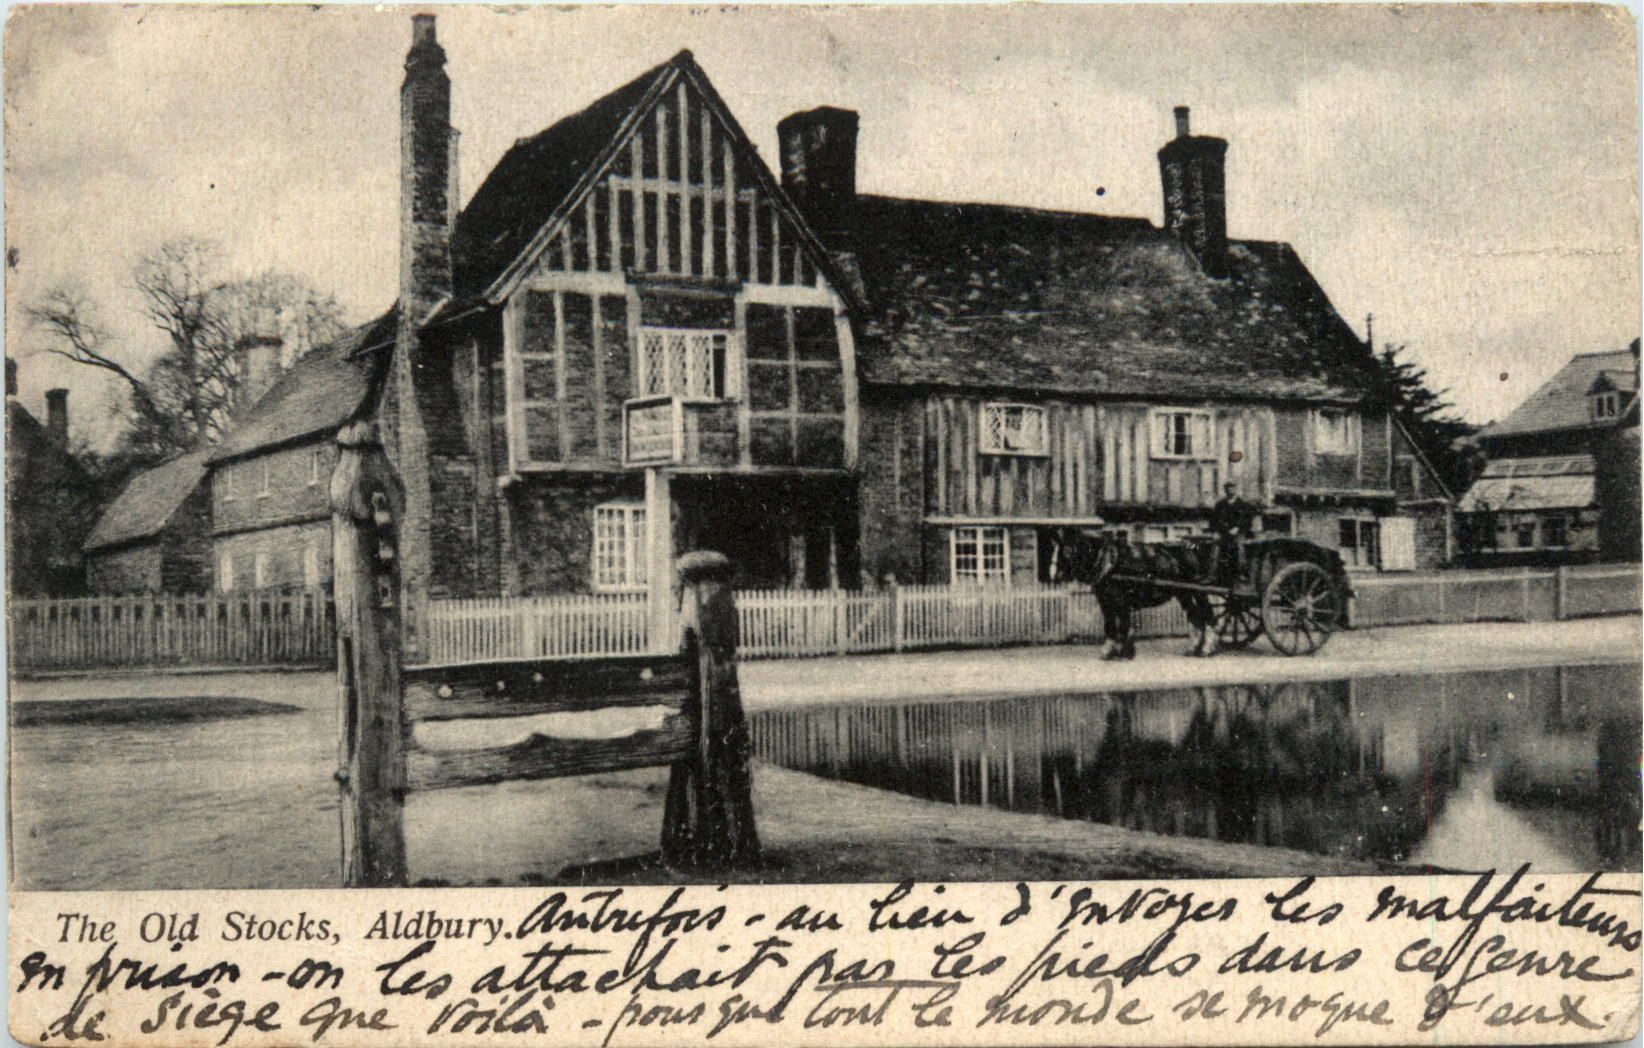 The Old Stocks, Aldbury. Autrefois - au lieu d'envoyer les malfaiteurs
en prison - on les attachait par les pieds dans ce genre
de siège que voilà - pour que tout le monde se moque d'eux.